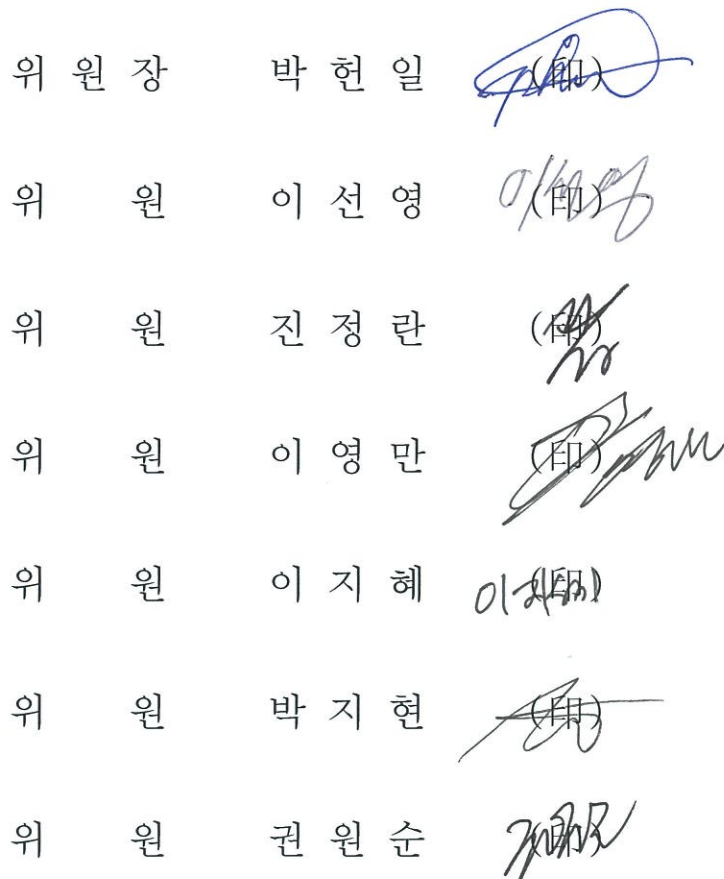 위 원 장 박 헌 일 (印)
위 원 이 선 영 (印)
위 원 진 정 란 (印)
위 원 이 영 만 (印)
위 원 이 지 혜 (印)
위 원 박 지 현 (印)
위 원 권 원 순 (印)